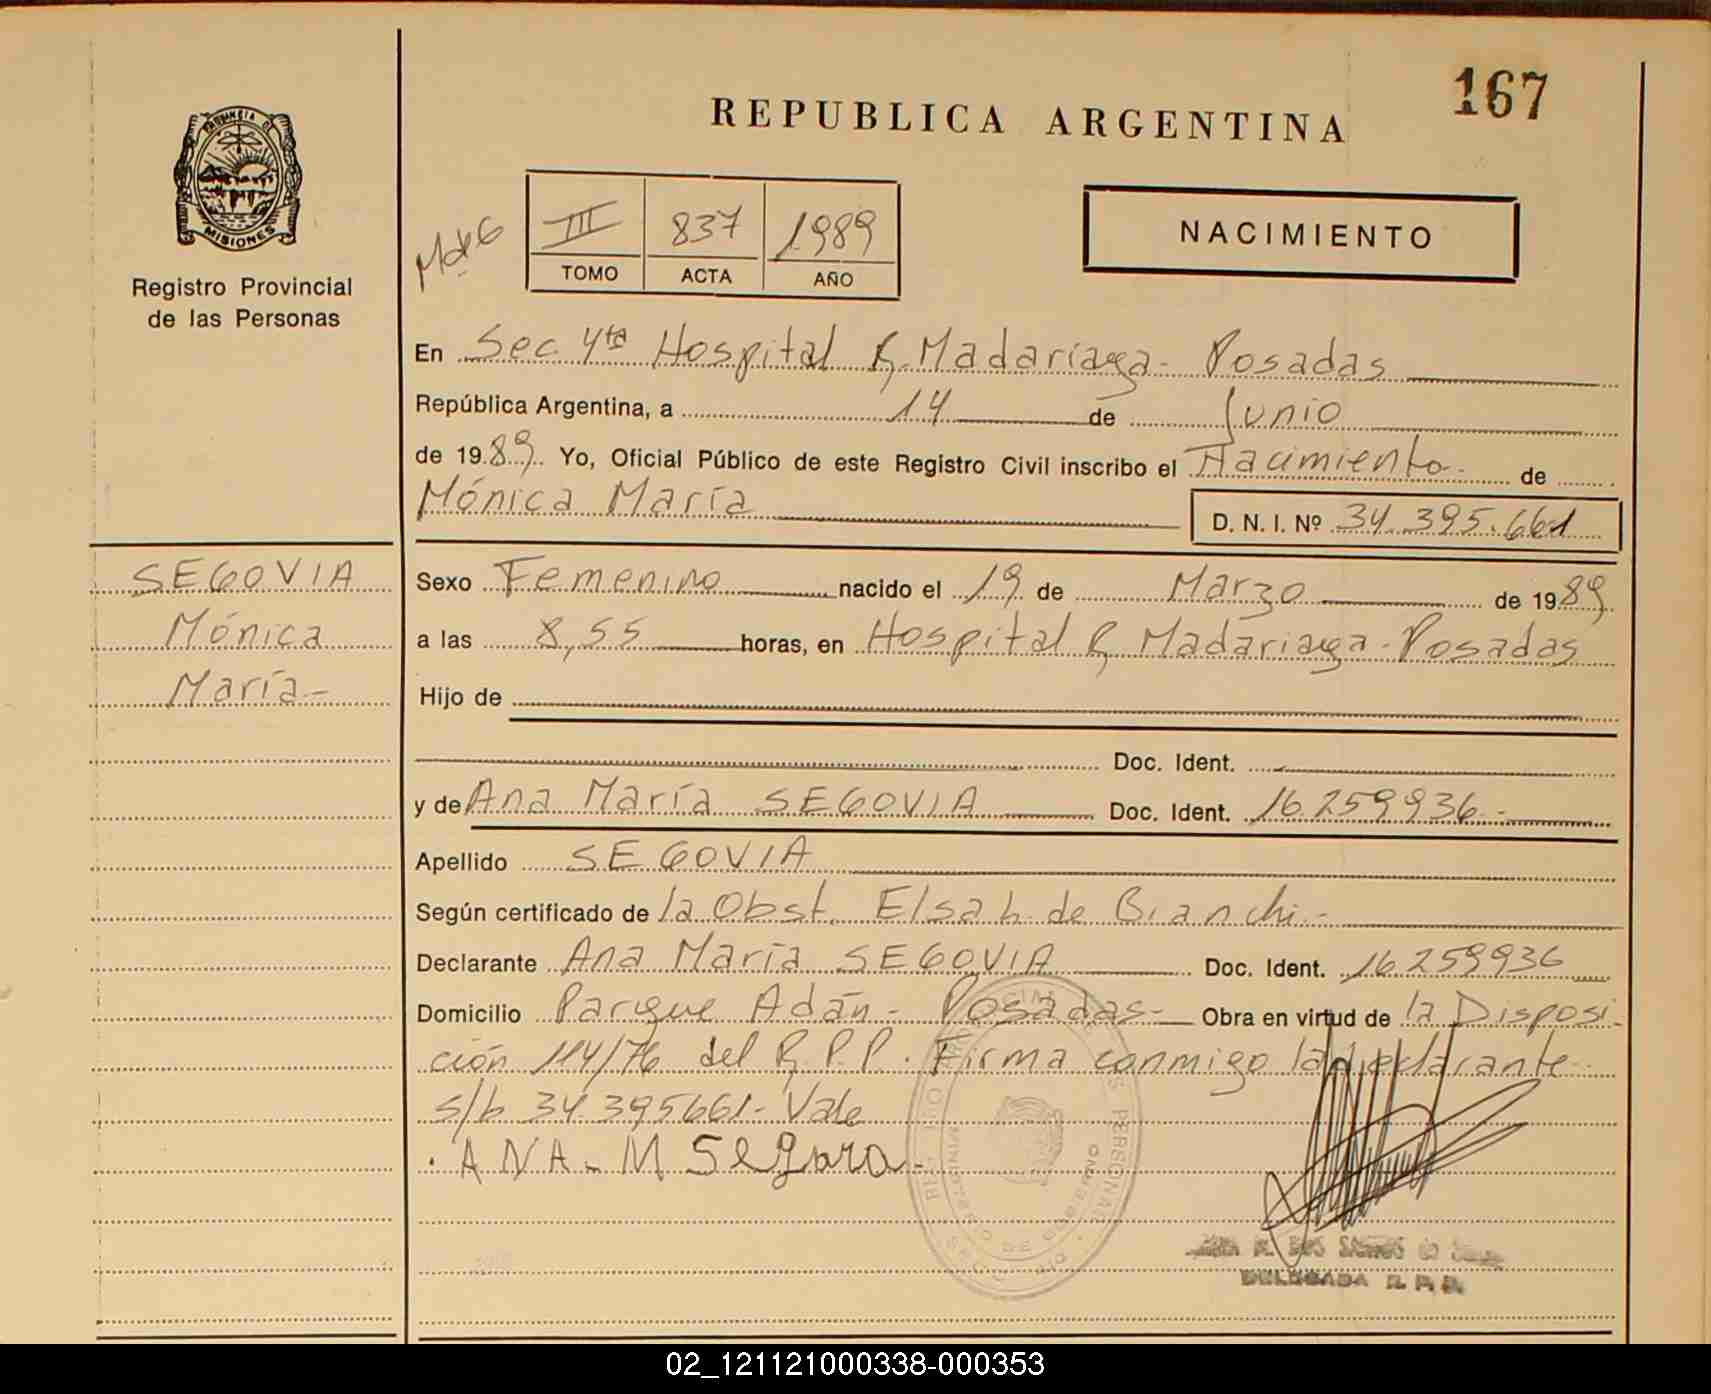 167
REPUBLICA ARGENTINA
PROVINCIA DE
MISIONES
Registro Provincial
de las Personas
M de G
III 837 1989
TOMO ACTA AÑO
NACIMIENTO
En Sec 4ta Hospital R. Madariaga - Posadas
República Argentina, a 14 de Junio
de 1989. Yo, Oficial Público de este Registro Civil inscribo el Nacimiento de
Mónica María D. N. I. Nº 34.395.661
SEGOVIA
Mónica
María-
Sexo Femenino nacido el 19 de Marzo de 1989
a las 8,55 horas, en Hospital R. Madariaga - Posadas
Hijo de
Doc. Ident.
y de Ana María SEGOVIA Doc. Ident. 16259936-
Apellido SEGOVIA
Según certificado de la Obst. Elsa L. de Bianchi-
Declarante Ana María SEGOVIA Doc. Ident. 16259936
Domicilio Parque Adán - Posadas- Obra en virtud de la Disposi-
ción 114/76 del R.P.P. Firma conmigo la declarante
s/b 34.395661- Vale
ANA - M Segova-
MINISTERIO DE GOBIERNO
DELEGADA R. P. P.
02_121121000338-000353